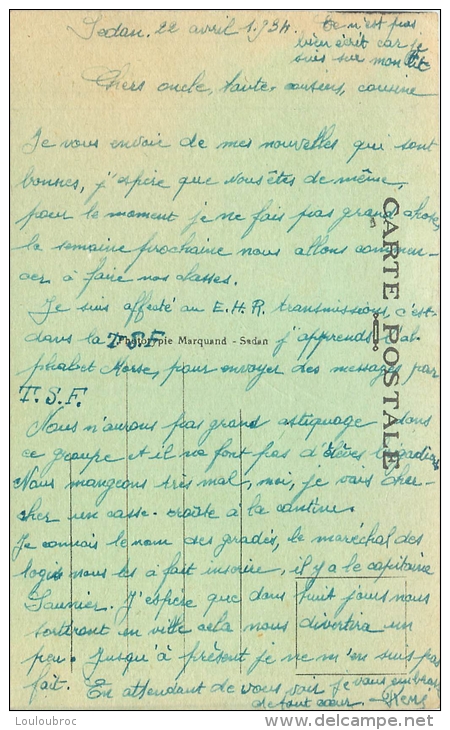 Sedan. 22 avril 1934
Ce n'est pas
bien écrit car je
suis sur mon lit
Chers oncle, tante, cousins, cousine
Je vous envoie de mes nouvelles qui sont
bonnes, j'espère que vous êtes de même,
pour le moment je ne fais pas grand chose,
la semaine prochaine nous allons commen-
cer à faire nos classes.
Je suis affecté au E.H.R. transmissions, c'est
dans la T.S.F. j'apprends l'al-
Phototypie Marquand - Sedan
phabet Morse, pour envoyer des messages par
T.S.F.
CARTE POSTALE
Nous n'aurons pas grand astiquage dans
ce groupe et il ne font pas d'élèves brigadiers
Nous mangeons très mal, moi, je vais cher-
cher un casse-croûte à la cantine.
Je connais le nom des gradés, le maréchal des
logis nous les à fait inscrire, il y a le capitaine
Saunier. J'espère que dans huit jours nous
sortiront en ville cela nous divertira un
peu. Jusqu'à présent je ne m'en suis pas
fait. En attendant de vous voir je vous embrasse
de tout cœur.
Louloubroc
www.delcampe.net